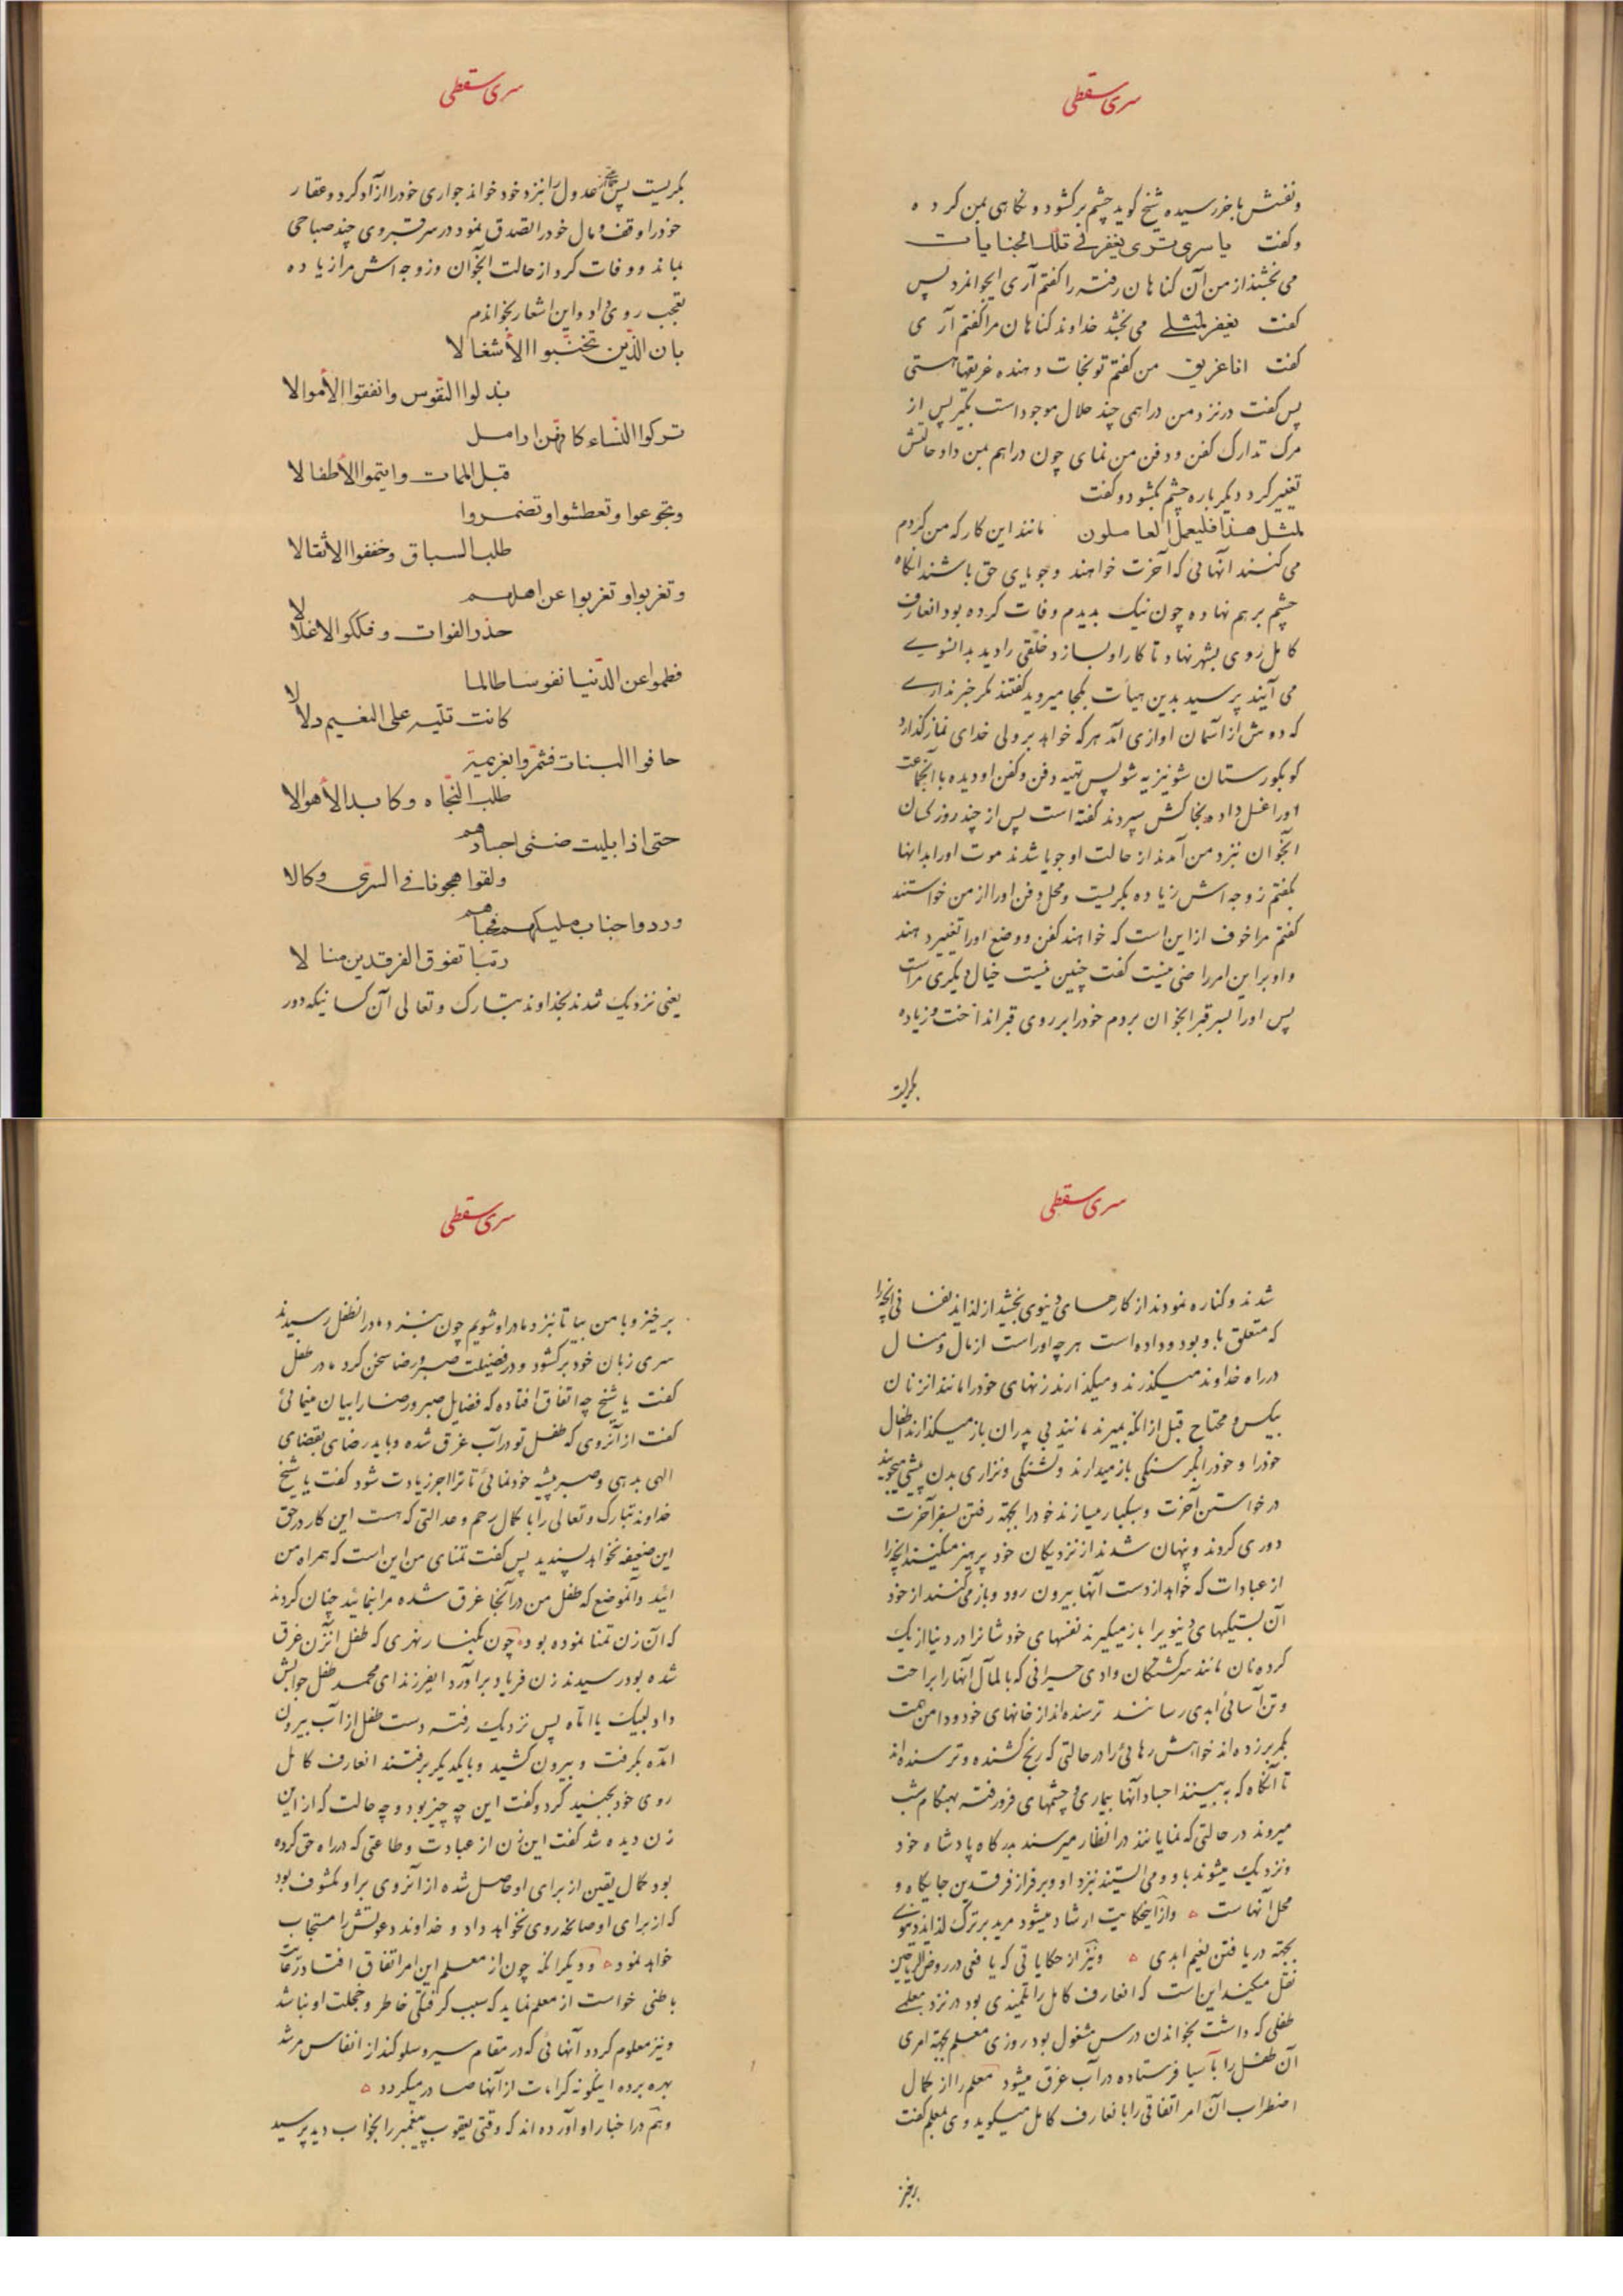 سری سقطی
ونفسش باخر رسیده شیخ کوید چشم برکشود و نکاهی بمن کرده
وکفت یا سری تری یغفر لی تلک الجنایات
می بخشند از من آن کناهان رفته را کفتم آری ایجوانمرد پس
کفت یغفر لمثلی می بخشد خداوند کناهان مرا کفتم آری
کفت انا غریق من کفتم تو نجات دهنده غریقها هستی
پس کفت در نزد من دراهمی چند حلال موجود است بکیر پس از
مرک تدارک کفن و دفن من نمای چون دراهم بمن داد حالتش
تغییر کرد دیکر باره چشم بکشود و کفت
لمثل هذا فلیعمل العاملون مانند این کار که من کردم
می کنند آنهائی که آخرت خواهند و جویای حق باشند انکاه
چشم بر هم نهاده چون نیک بدیدم وفات کرده بود انعارف
کامل روی بشهر نهاد تا کار او بسازد خلقی را دید بدانسوی
می آیند پرسید بدین هیأت بکجا میروید کفتند مکر خبر نداری
که دوش از آسمان اوازی آمد هر که خواهد بر ولی خدای نماز کذارد
کو بکورستان شونیزیه شو پس تهیه دفن و کفن او دیده با انجماعت
اورا غسل داده بخاکش سپردند کفته است پس از چند روز کسان
انجوان نزد من آمدند از حالت او جویا شدند موت اورا بدانها
بکفتم زوجه اش زیاده بکریست و محل دفن اورا از من خواستند
کفتم مرا خوف از این است که خواهند کفن و وضع اورا تغییر دهند
و او بر این امر راضی نیست کفت چنین نیست خیال دیکری مراست
پس اورا بسر قبر انجوان بردم خودرا بر روی قبر انداخت و زیاده
بکریست
سری سقطی
بکریست پس عدول را بنزد خود خواند جواری خودرا ازاد کرد و عقار
خودرا وقف و مال خودرا تصدق نمود و در سر قبر وی چند صباحی
بماند و وفات کرد از حالت انجوان و زوجه اش مرا زیاده
تعجب روی داد و این اشعار بخواندم
بان الذین تجنبوا الأشغالا
بذلوا النفوس وانفقوا الأموالا
ترکوا النساء کانهن ارامل
قبل الممات وایتموا الأطفالا
وتجوعوا وتعطشوا وتضمروا
طلب السباق وخففوا الأثقالا
وتغربوا وتغربوا عن اهلهم
حذر الفوات وفککوا الاغلالا
فطموا عن الدنیا نفوسا طالما
کانت تتیه علی النعیم دلالا
خافوا البیات فشمروا بعزیمة
طلب النجاه وکابدوا الأهوالا
حتی اذا بلیت ضنی اجسادهم
ولقوا هجونا فی السری وکالا
وردوا جناب ملیکهم فحباهم
رتبا تفوق الفرقدین منالا
یعنی نزدیک شدند بخداوند تبارک وتعالی آن کسانیکه دور
سری سقطی
شدند و کناره نمودند از کارهای دنیوی بخشید از لذاید نفسانی انچه را
که متعلق باو بود و داده است هر چه اوراست از مال و منال
در راه خداوند میکذرند و میکذارند زنهای خودرا مانند انزنان
بیکس و محتاج قبل از انکه بمیرند مانند بی پدران باز میکذارند اطفال
خودرا و خودرا بکرسنکی باز میدارند و تشنکی و نزاری بدن پیشی میجویند
در خواستن آخرت و سبکبار میسازند خودرا بجهة رفتن بسفر آخرت
دوری کردند و پنهان شدند از نزدیکان خود پرهیز میکنند انچه را
از عبادات که خواهد از دست آنها بیرون رود و باز می کنند از خود
آن بستیکهای دنیویرا باز میکیرند نفسهای خود شانرا در دنیا از یک
کرده نان مانند سرکشتکان وادی حیرانی که بالمآل آنها را براحت
و تن آسائی ابدی رسانند ترسنده اند از خانهای خود و دامن همت
بکمر برزده اند خواهش رهائی را در حالتی که رنج کشنده و ترسنده اند
تا آنکاه که به بینند اجساد آنها بیماری و چشمهای فرورفته بهنکام شب
میروند در حالتی که نمایانند در انظار میرسند بدرکاه پادشاه خود
و نزدیک میشوند باو و می ایستند نزد او و بر فراز فرقدین جایکاه و
محل آنهاست و از اینحکایت ارشاد میشود مرید بر ترک لذاید دنیوی
بجهة دریافتن نعیم ابدی و نیز از حکایاتی که یافعی در روض الریاحین
نقل میکند این است که انعارف کامل را تلمیذی بود در نزد معلمی
طفلی که داشت بخواندن درس مشغول بود روزی معلم بجهة امری
آن طفل را بآسیا فرستاده در آب غرق میشود معلم را از کمال
اضطراب آن امر اتفاقی را بانعارف کامل میکوید وی بمعلم کفت
برخیز
سری سقطی
برخیز و با من بیا تا نزد مادر او شویم چون بنزد مادر انطفل رسیدند
سری زبان خود برکشود و در فضیلت صبر و رضا سخن کرد مادر طفل
کفت یا شیخ چه اتفاق افتاده که فضایل صبر و رضا را بیان مینمائی
کفت از آنروی که طفل تو در آب غرق شده و باید رضای بقضای
الهی بدهی و صبر پیشه خود نمائی تا ترا اجر زیادت شود کفت یا شیخ
خداوند تبارک و تعالی را با کمال رحم و عدالتی که هست این کار در حق
این ضعیفه نخواهد پسندید پس کفت تمنای من این است که همراه من
ائید و آنموضع که طفل من در آنجا غرق شده مرا بنمائید چنان کردند
که آن زن تمنا نموده بود چون بکنار نهری که طفل انزن غرق
شده بود رسیدند زن فریاد براورد ایفرزند ای محمد طفل جوابش
داد لبیک یا اماه پس نزدیک رفته دست طفل از آب بیرون
امده بکرفت و بیرون کشید و با یکدیکر برفتند انعارف کامل
روی خود بجنید کرد و کفت این چه چیز بود و چه حالت که از این
زن دیده شد کفت این زن از عبادت و طاعتی که در راه حق کرده
بود کمال یقین از برای او حاصل شده از آنروی بر او مکشوف بود
که از برای او سانحه روی نخواهد داد و خداوند دعوتش را مستجاب
خواهد نمود و دیکر انکه چون از معلم این امر اتفاق افتاد
باطنی خواست از معلم نماید که سبب کرفتکی خاطر و خجلت او نباشد
و نیز معلوم کردد آنهائی که در مقام سیر و سلوکند از انفاس مرشد
بهره برده اینکونه کرامات از آنها صادر میکردد
و هم در اخبار او آورده اند که وقتی یعقوب پیغمبر را بخواب دید پرسید